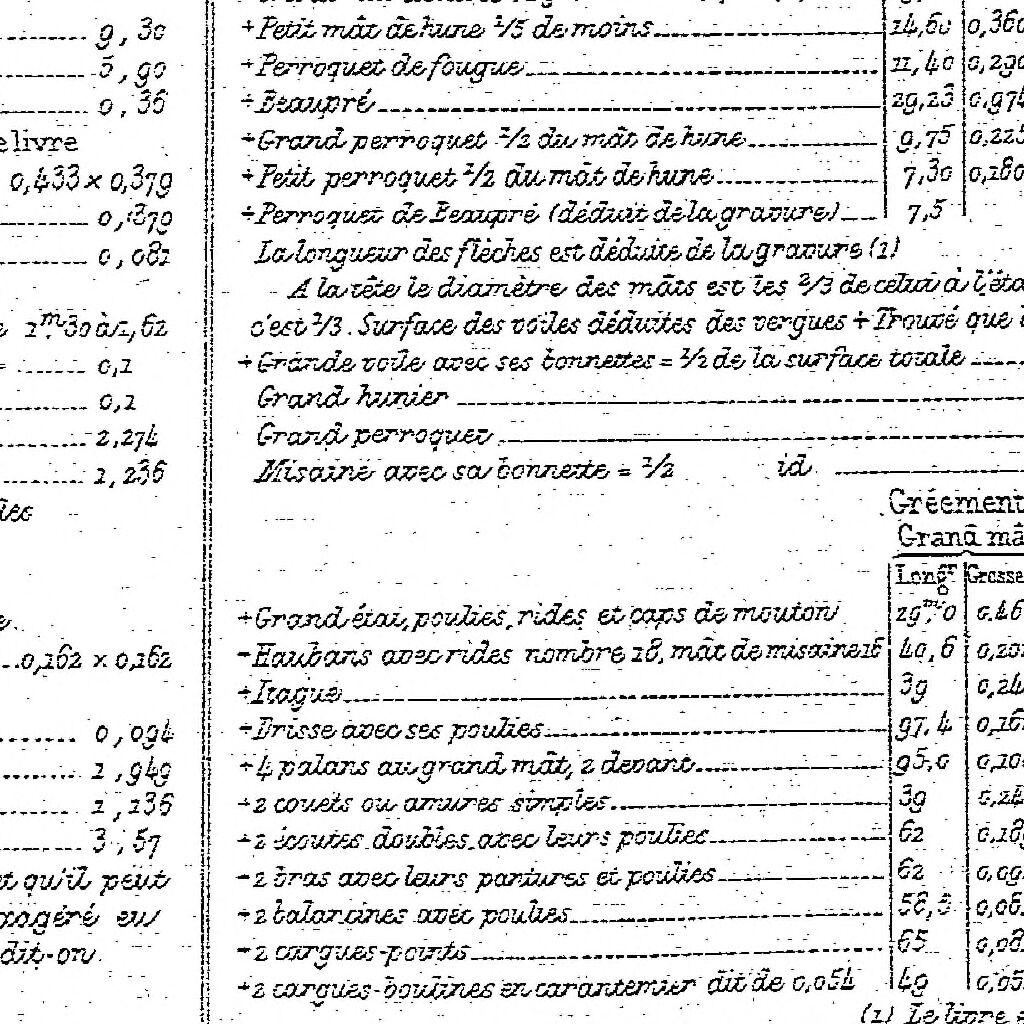 9,30
5,90
0,36
e livre
0,433 x 0,379
0,379
0,081
1m30 à 1,62
= 0,1
0,1
2,274
1,236
0,162 x 0,162
0,094
1,949
1,136
3,57
qu'il peut
exagéré eu
dit-on
+ Petit mât de hune 1/5 de moins 14,60 0,360
+ Perroquet de fougue 11,40 0,290
+ Beaupré 29,23 0,974
+ Grand perroquet 1/2 du mât de hune 9,75 0,225
+ Petit perroquet 1/2 du mât de hune 7,30 0,180
+ Perroquet de Beaupré (déduit de la gravure) 7,5
La longueur des flèches est déduite de la gravure (1)
A la tête le diamètre des mâts est les 2/3 de celui à l'éta
c'est 1/3. Surface des voiles déduites des vergues + Trouvé que
+ Grande voile avec ses bonnettes = 1/2 de la surface totale
Grand hunier
Grand perroquet
Misaine avec sa bonnette = 1/2 id
Gréement
Grand mâ
Longr Grosse
+ Grand étai, poulies, rides et caps de mouton 29m,0 0.46
- Haubans avec rides nombre 18, mât de misaine 16 40,6 0,20
+ Itague 39 0,24
- Drisse avec ses poulies 97,4 0,16
+ 4 palans au grand mât, 2 devant 95,0 0,10
+ 2 couets ou amures simples 39 0,24
- 2 écoutes doubles avec leurs poulies 62 0,18
- 2 bras avec leurs pantures et poulies 62 0,09
- 2 balancines avec poulies 58,5 0,08
- 2 cargues-points 65 0,08
+ 2 cargues-boulines en carantenier dit de 0,054 49 0,05
(1) Le livre e